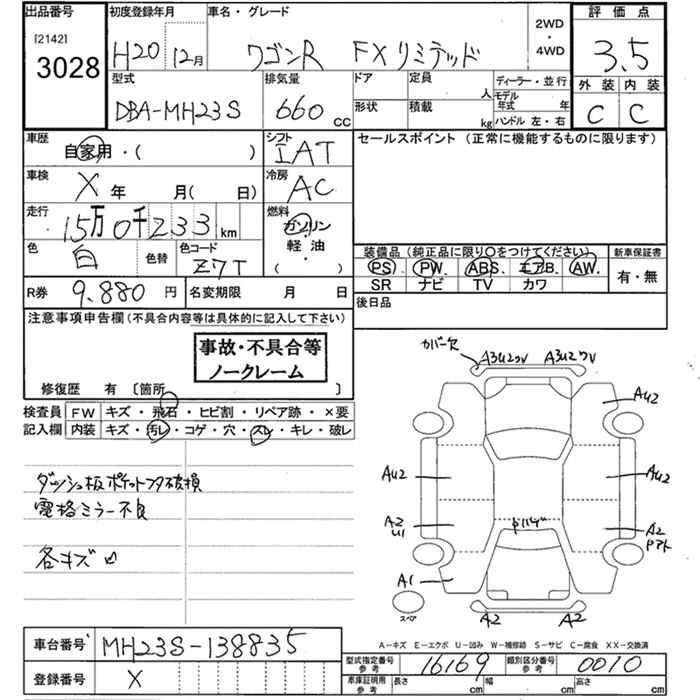 出品番号 初度登録年月 車名・グレード 2WD ・ 4WD 評価点
[2142]
3028 H20 12月 ワゴンR FXリミテッド 3.5
型式 排気量 ドア 定員 人 ディーラー・並行 外装 内装
DBA-MH23S 660 CC 形状 積載 kg モデル年式 年 ハンドル 左・右 C C
車歴 自家用・( ) シフト IAT セールスポイント (正常に機能するものに限ります)
車検 X 年 月( 日) 冷房 AC
走行 15万0千233 km 燃料 ガソリン
色 白 色替 色コード Z7T 軽油 ( ) 装備品 (純正品に限り〇をつけてください) 新車保証書
PS. PW. ABS. エアB. AW. 有・無
SR ナビ TV カワ
R券 9.880 円 名変期限 月 日 後日品
注意事項申告欄 (不具合内容等は具体的に記入して下さい)
事故・不具合等
ノークレーム
修復歴 有 〔箇所 〕
検査員 FW キズ・飛石・ヒビ割・リペア跡・×要
記入欄 内装 キズ・汚レ・コゲ・穴・スレ・キレ・破レ
ダッシュ板ポケットフタ破損
電格ミラー不良
各キズ凹
カバー欠 A3U2ワレ A3U2ワレ
AU2
AU2 AU2
A2 U1 A2
A1
スペア A2 A2
A-キズ E-エクボ U-凹み W-補修跡 S-サビ C-腐食 XX-交換済
車台番号 MH23S-138835
型式指定番号 参考 16169 類別区分番号 参考 0010
登録番号 X 車庫証明用 参考 長さ cm 幅 cm 高さ cm